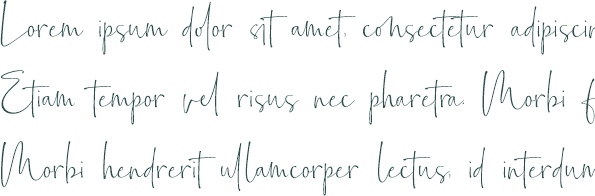 Lorem ipsum dolor sit amet, consectetur adipiscin
Etiam tempor vel risus nec pharetra. Morbi f
Morbi hendrerit ullamcorper lectus, id interdum